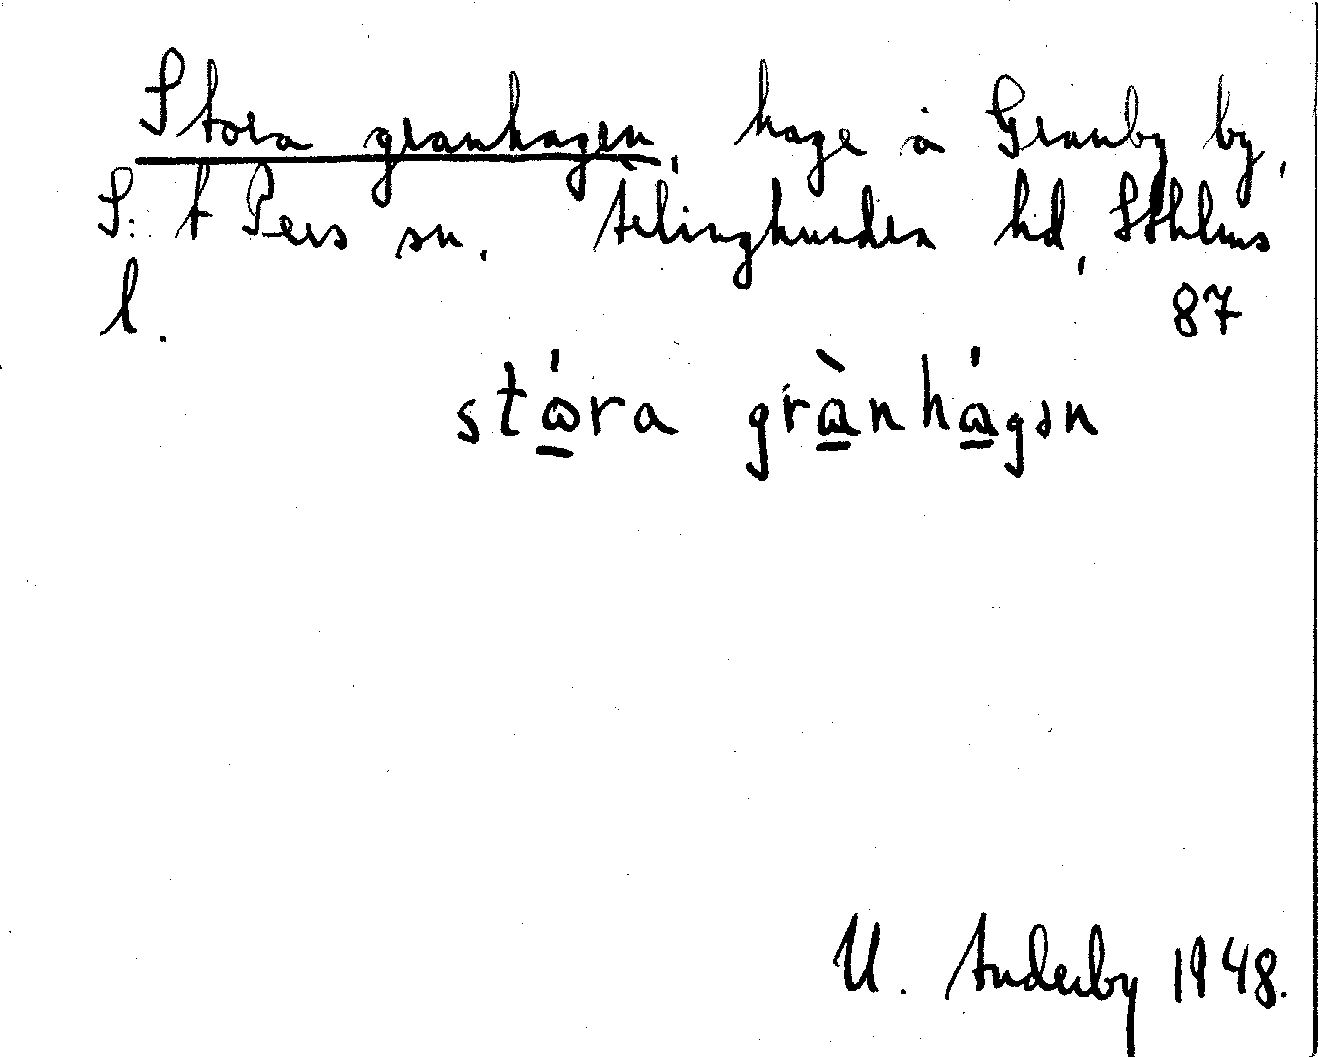 Stora granhagen, hage å Granby by,
S:t Pers sn, Ärlinghundra hd, Sthlms
l. 87
stóra grànhágən
U. Anderby 1948.